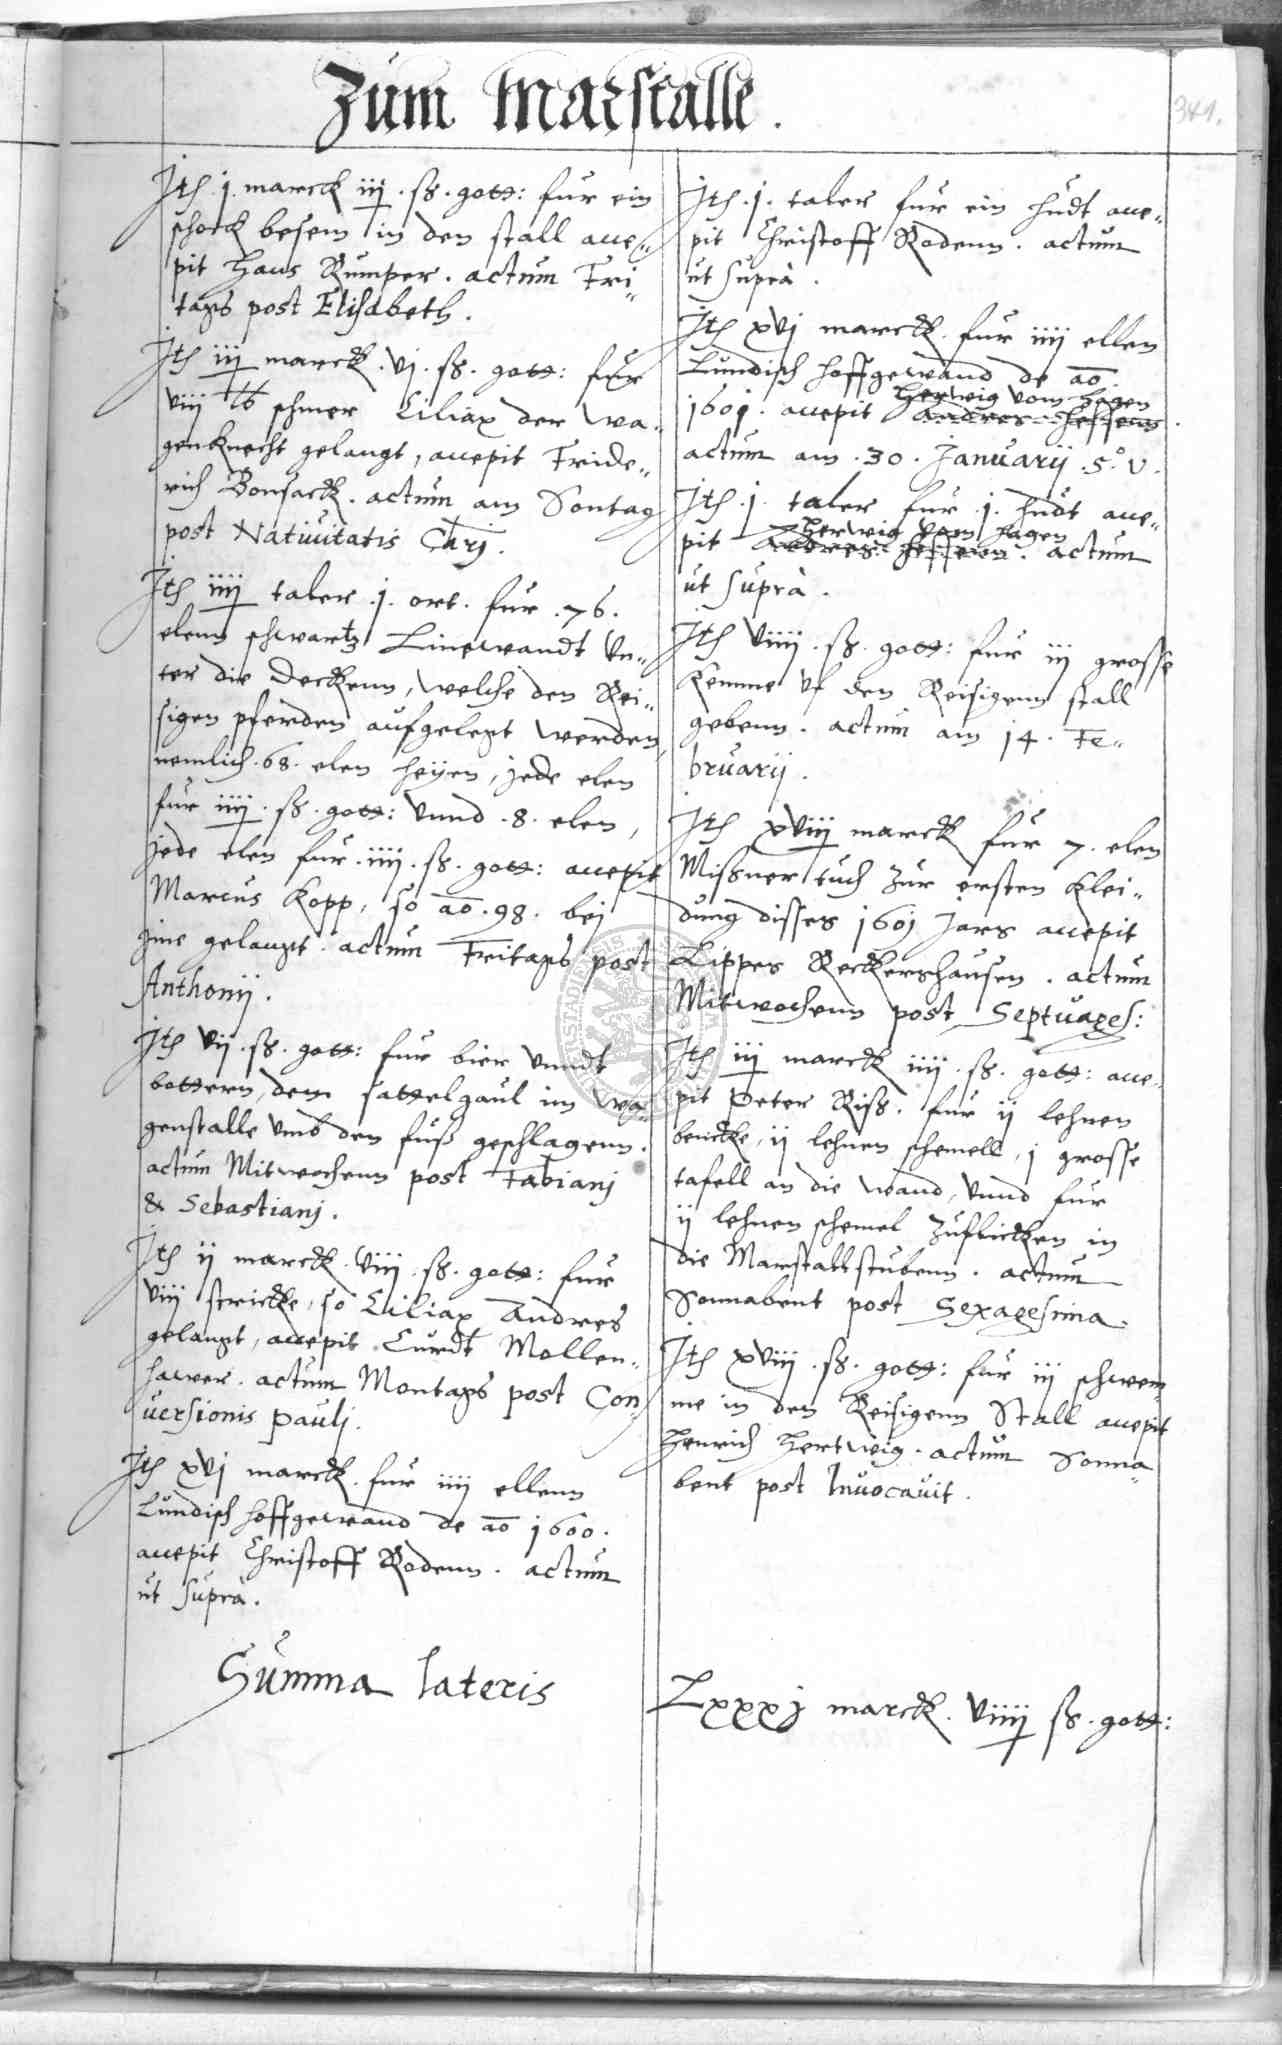 Zum Marstalle.
341.
Jtem .j. marck iij . ß . gott: fur ein
schock besem in den stall acce„
pit Hans Rumper . actum Fri„
tags post Elisabeth.
Jtem iij marck . vj . ß . gott: fur
viij lb schmer Ciliax der wa„
genknecht gelangt, accepit Fride„
rich Bonsack . actum am Sontag
post Natiuitatis Chrj.
Jtem iiij taler .j. ort . fur . 76 .
elenn schwartz Linewandt Vn„
ter die Deckenn, welche den Rei„
sigen pferden aufgelegt werden,
nemlich . 68 . elen heyen, jede elen
fur iiij . ß . gott: vnnd . 8 . elen,
jede elen fur . iiij . ß . gott: accepit
Marcus Kopp, so ao . 98 . bej
jme gelangt . actum Fritags post
Anthonij.
Jtem vij . ß . gott: fur bier vnndt
bottern, dem sattelgaul im wa„
genstalle vmb den fuß geschlagenn .
actum Mitwochenn post Fabianj
& Sebastianj.
Jtem ij marck . viij . ß . gott: fur
viij stricke, so Ciliax Andres
gelangt, accepit Curdt Mollen„
hawer . actum Montags post Con„
uersionis Paulj.
Jtem xvj marck . fur iiij ellenn
Lundisch hoffgewand de ao 1600 .
accepit Christoff Rodenn . actum
ut suprà.
Jtem .j. taler fur ein hudt acce„
pit Christoff Rodenn . actum
ut suprà.
Jtem xvj marck . fur iiij ellen
Lundisch hoffgewand de ao .
Herwig vom Hagen
1601 . accepit Andres Hessenn .
actum am . 30 . Januarij . 5° V .
Jtem .j. taler fur .j. hudt acce„
Herwig vom Hagen
pit Andres Hessenn . actum
ut suprà.
Jtem viiij . ß . gott: fur iij grosse
Kemme vf den Reisigenn stall
gebenn . actum am 14 . Fe„
bruarij.
Jtem xviij marck fur 7 . elen
Missner tuch zur ersten Klei„
dung disses 1601 Jars accepit
Lippes Reckershausen . actum
Mitwochenn post Septuages:
Jtem iij marck iiij . ß . gott: acce„
pit Peter Riß . fur ij lehnen
bencke, ij lehnen schemell, j grosse
tafell an die wand, vnnd fur
ij lehnen schemel zuflicken in
die Marstallstubenn . actum
Sonnabent post Sexagesima.
Jtem xviij . ß . gott: fur iij schwem„
me in den Reisigenn Stall accepit
Henrich Hertwig . actum Sonna„
bent post Inuocauit.
Summa lateris
Lxxxj marck . viiij ß . gott: